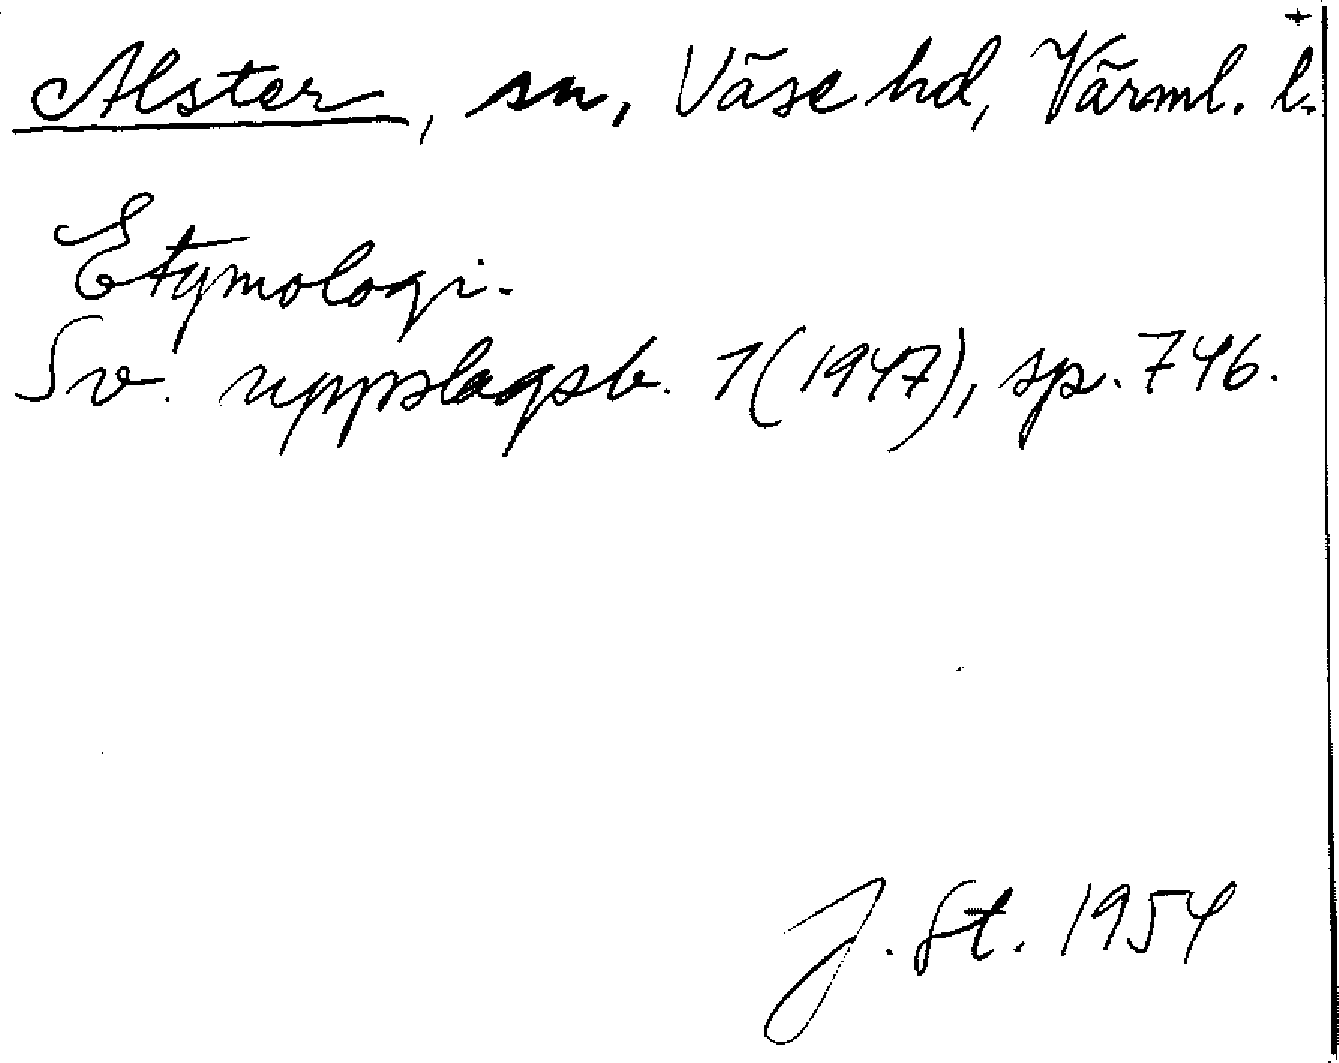 Alster, sn, Väse hd, Värml. l.
Etymologi.
Sv. uppslagsb. 1 (1947), sp. 746.
J. St. 1954